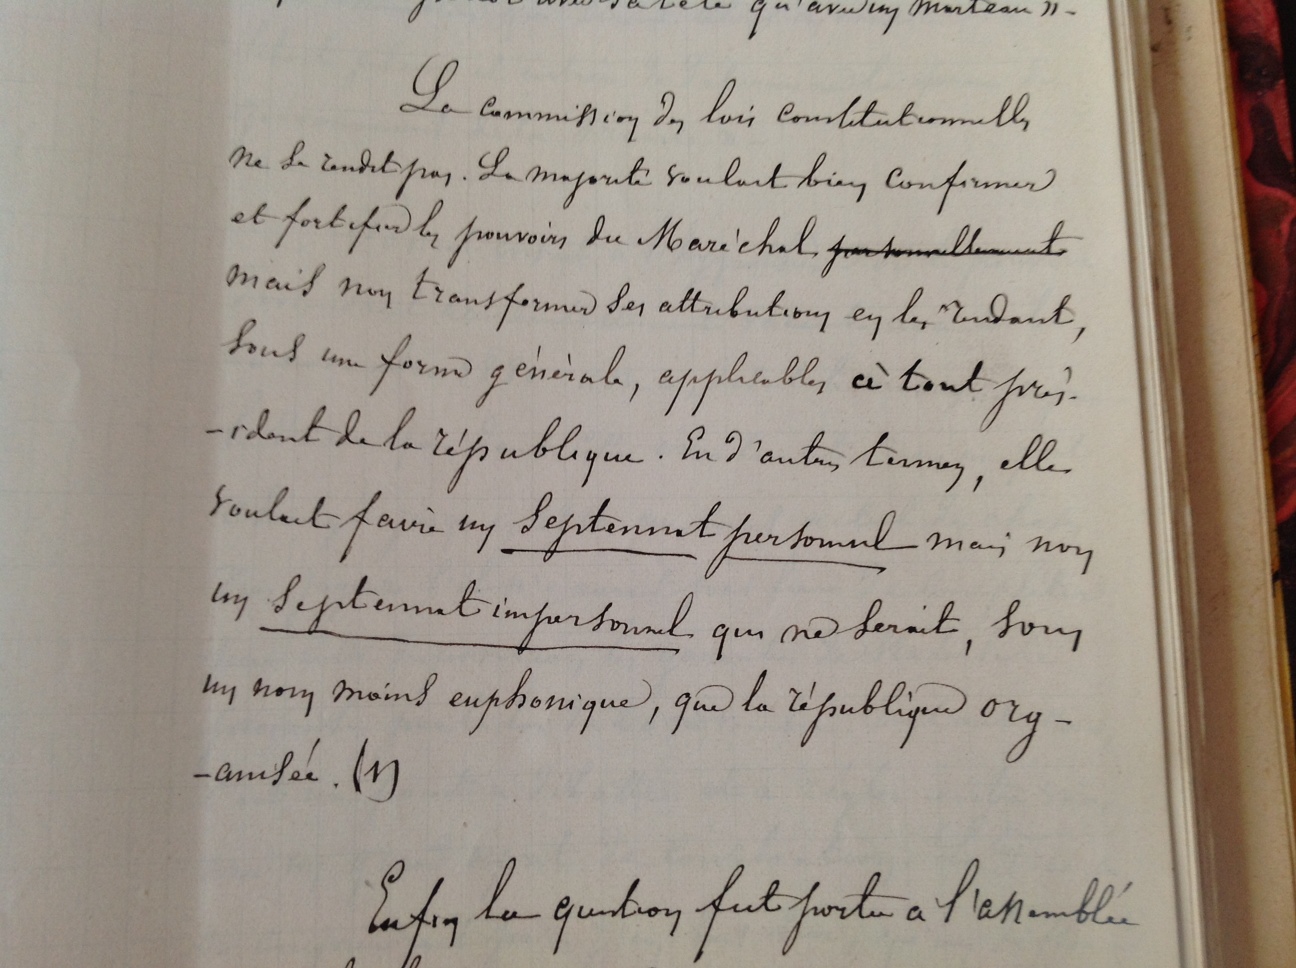 qu'avec un marteau ».
La commission des lois constitutionnelles
ne se rendit pas. La majorité voulait bien confirmer
et fortifier les pouvoirs du Maréchal personnellement
mais non transformer ses attributions en les rendant,
sous une forme générale, applicables à tout prés-
-ident de la république. En d'autres termes, elle
voulait faire un Septennat personnel mais non
un Septennat impersonnel qui ne serait, sous
un nom moins euphonique, que la république org-
-anisée. (1)
Enfin la question fut portée à l'assemblée